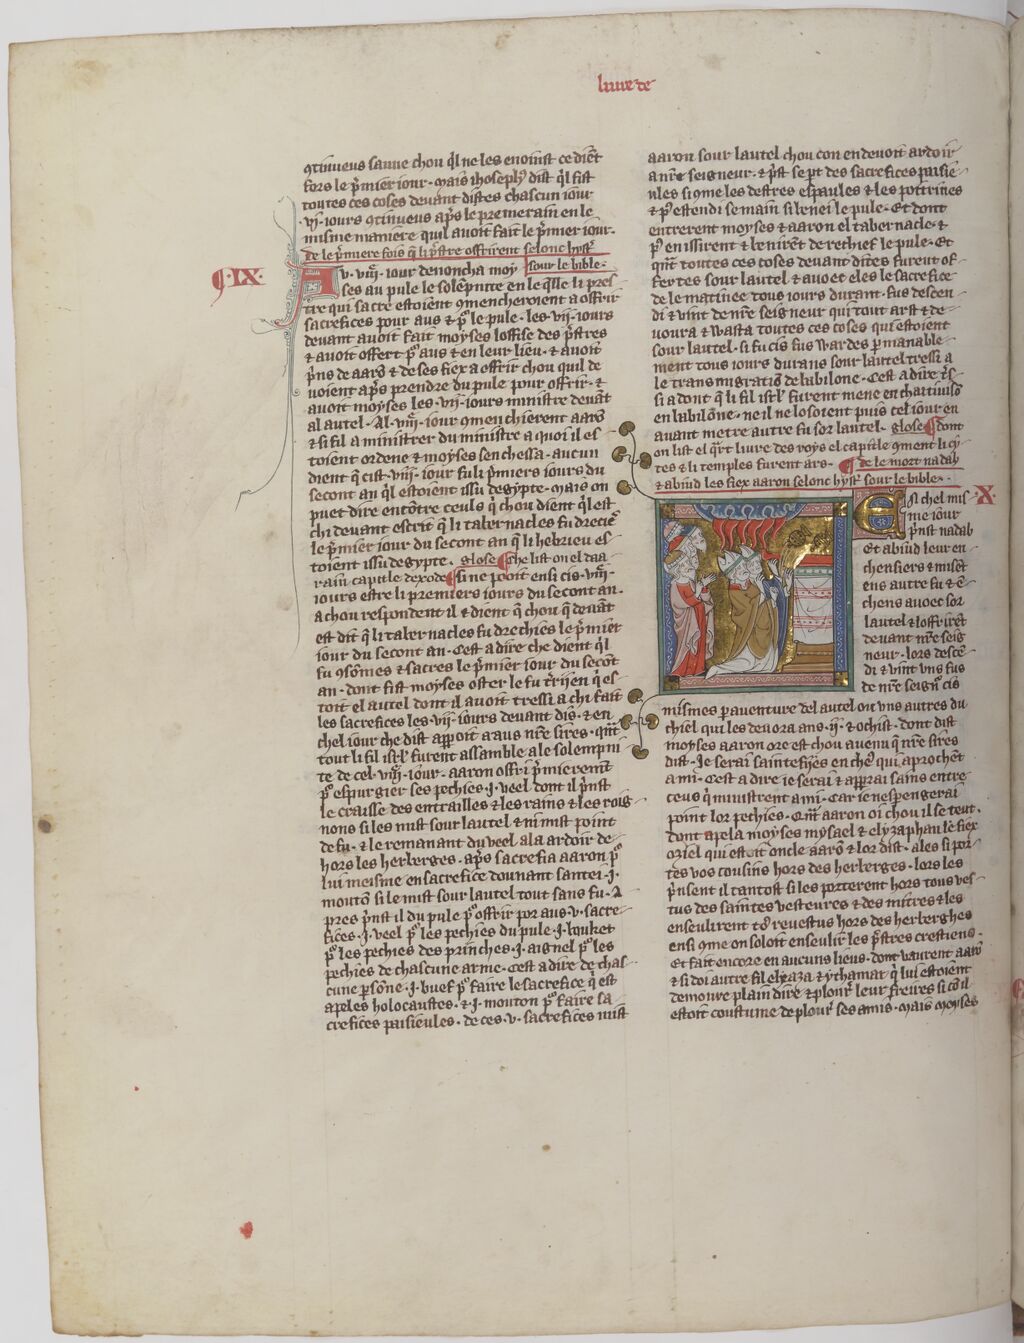 liure de
q̄tinueus sauue chou q̄l ne les enoinst ce diēt
fors le p̄mier iour. mais ihoseph⁹ dist q̄l fist
toutes ces coses deuant dites chascun iour
.vij. iours q̄tinueus ap̄s le premerain en le
misme maniere quil auoit fait le p̄mier iour.
de le p̄miere fois q̄ li p̄stre offrirent selonc hyst̄
¶.IX. Au .viij. iour denoncha moy sour le bible.
ses au pule le solempnite en le q̄lle li pres
tre qui sacre estoient q̄mencheroient a offrir
sacrefices pour aus & p̄ le pule. les .vij. iours
deuant auoit fait moyses loffise des p̄stres
& auoit offert p̄ aus & en leur lieu. & auoit
p̄ns de aarō & de ses fiex a offrir chou quil de
uoient ap̄s prendre du pule pour offrir. &
auoit moyses les .vij. iours ministre deuāt
al autel. Al .viij. iour q̄menchierent aarō
& si fil a ministrer du ministre a quoi il es
toient ordene & moyses sen chessa. aucun
dient q̄ cist .viij. iour fu li p̄miers iours du
secont an q̄l estoient issu degypte. mais on
puet dire encōtre ceuls q̄ chou dient q̄l est
chi deuant escrit q̄ li tabernacles fu drecies
le p̄mier iour du secont an q̄ li hebrieu es
toient issu degypte. glose ¶che list on el daa
rain capitle dexode ¶si ne pooit ensi cis .viij.
iours estre li premiers iours du secont an.
a chou respondent il & dient q̄ chou q̄ deuāt
est dit q̄ li tabernacles fu drechies le p̄mier
iour du secont an. Cest a dire che dient q̄l
fu 9sōmes & sacres le p̄mier iour du secōt
an. dont fist moyses oster le fu t̄rijen q̄ es
toit el autel dont il auoit tressi a chi fait
les sacrefices les .vij. iours deuant dis. & en
chel iour che dist apparoit a aus nr̄e sires. q̄nt
tout li fil isrl̄ furent assamble a le solempni
te de cel .viij. iour. aaron offri p̄mieremēt
p̄ espurgier ses pechies .j. veel dont il p̄nst
le craisse des entrailles & les rains & les roig
nons si les mist sour lautel & ni mist point
de fu. & le remanant du veel ala ardoir de
hors les herberges. ap̄s sacrefia aaron p̄
lui meisme en sacrefice dounant santei .j.
moutō si le mist sour lautel tout sans fu. A
pres p̄nst il du pule p̄ offrir por aus .v. sacre
fices .j. veel p̄ les pechies du pule .j. bouket
p̄ les pechies des prinches .j. aignel p̄ les
pechies de chascune arme. Cest a dire de chas
cune p̄sōne .j. buef p̄ faire le sacrefice q̄ est
apeles holocaustes. & .j. mouton p̄ faire sa
crefices paisieules. de ces .v. sacrefices mist
aaron sour lautel chou con en deuoit ardoir
a nr̄e seigneur. & p̄st se part des sacrefices paisie
ules si 9me les destres espaules & les poitrines
& p̄ estendi se main si benei le pule. Et dont
entrerent moyses & aaron el tabernacle. &
p̄ en issirent & benirēt de rechief le pule. Et
q̄nt toutes ces coses deuant dites furent of
fertes sour lautel & auoec eles le sacrefice
de le matinee tous iours durant. fus descen
di & vint de nr̄e seigneur qui tout arst & de
uoura & wasta toutes ces coses qui estoient
sour lautel. si fu cis fus wardes p̄ manable
ment tous iours durans sour lautel tressi a
le transmigratiō de babilone. Cest a dire tres
si adont q̄ li fil isrl̄ furent mene en chaitiuisō
en babilōne. ne il ne losoient puis cel iour en
auant metre autre fu sor lautel. glose ¶dont
on list el q̄rt liure des roys el capitle 9ment li ci
tes & li temples furent ars. ¶de le mort nadab
& abiud les fiex aaron selonc hyst̄ sour le bible.
En chel mis X
me iour
p̄nst nadab
et abiud leur en
chensiers & misēt
ens autre fu & ē
chens auoec sor
lautel & loffrirēt
deuant nr̄e seig
neur. lors descē
di & vint vns fus
de nr̄e seign̄ cis
mismes p̄ auenture del autel ou vns autres du
chiel qui les deuora ans .ij. & ochist. dont dist
moyses aaron ore est chou auenu q̄ nr̄e sires
dist. Je serai saintefijes en ches qui aprochēt
a mi. Cest a dire ie serai & apparrai sains entre
ceus q̄ ministrent a mi. Car ie nespengerai
point lor pechies. Q̄nt aaron oi chou il se teut.
dont apela moyses mysael & elyzaphan le fiex
oziel qui estoit oncle aarō & lor dist. ales si por
tes vos cousins hors des herberges. lors les
p̄nsent il tantost si les porterent hors tous ves
tus des saintes vesteures & des mitres & les
enseulirent to⁹ reuestus hors des herberghes
ensi 9me on soloit enseulir les p̄stres crestiens.
Et fait encore en aucuns lieus. dont vaurent aarō
& si doi autre fil elyaza & ythamar q̄ lui estoient
demoure plain dire & plour̄ leur freres si cō il
estoit coustume de plour̄ ses amis. mais moyses